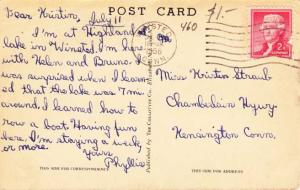 POST CARD
$1.-
460
Dear Kristen, July 11
I'm at Highland
lake in Winsted. I'm here
with Helen and Bruno. I
was surprised when I learn
ed that the lake was 7 mi
around. I learned how to
row a boat. Having fun
here. I'm staying a week
or more.
Yours
Phyllis
THIS SIDE FOR CORRESPONDENCE
Published by The Collotype Co.
WINSTED
1956
CONN.
2¢
Miss Kristen Straub
Chamberlain Hgwy
Kensington Conn.
THIS SIDE FOR ADDRESS